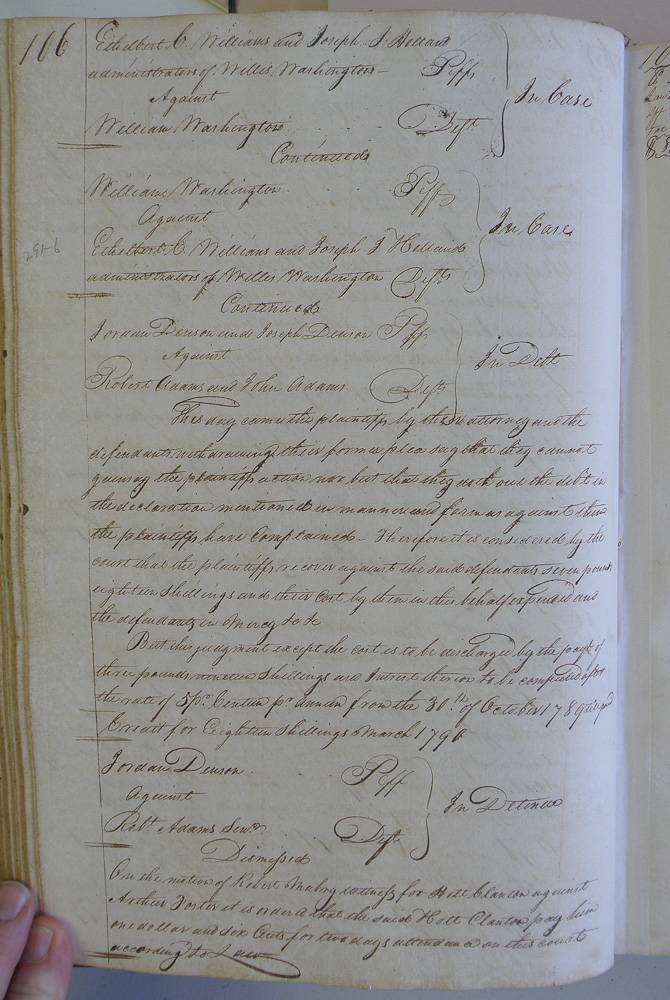 106
Ethelbert C. Williams and Joseph J. Holland
administrators of Willis Washington — Plffs
Against In Case
William Washington Deft
Continued
William Washington Plff
Against In Case
Ethelbert C. Williams and Joseph J. Holland
administrators of Willis Washington Defts
291-6
Continued
Jordan Denson and Joseph Denson Plff
Against In Debt
Robert Adams and John Adams Defts
This day came the plaintiffs by their attorney and the
defendants withdrawing their former plea say that they cannot
gainsay the plaintiffs action nor but that they owe the debt in
the declaration mentioned in manner and form as against them
the plaintiffs have Complained — Therefore it is considered by the
court that the plaintiffs recover against the said defendants seven pounds
eighteen Shillings and their Cost by them in this behalf expended and
the defendants in Mercy &c
But this judgment except the cost is to be discharged by the paymt. of
three pounds nineteen Shillings and Interest thereon to be computed after
the rate of 5 pr. Centum pr. annum from the 30th. of October 1789 till paid
Credit for Eighteen Shillings March 1796
Jordan Denson Plff
Against In Detinue
Robt. Adams Senr. Deft
Dismissed
On the motion of Robert Mabry witness for Holt Clanton against
Arthur Foster it is order'd that the said Holt Clanton pay him
one dollar and six Cents for two days attendance on this court
according to Law